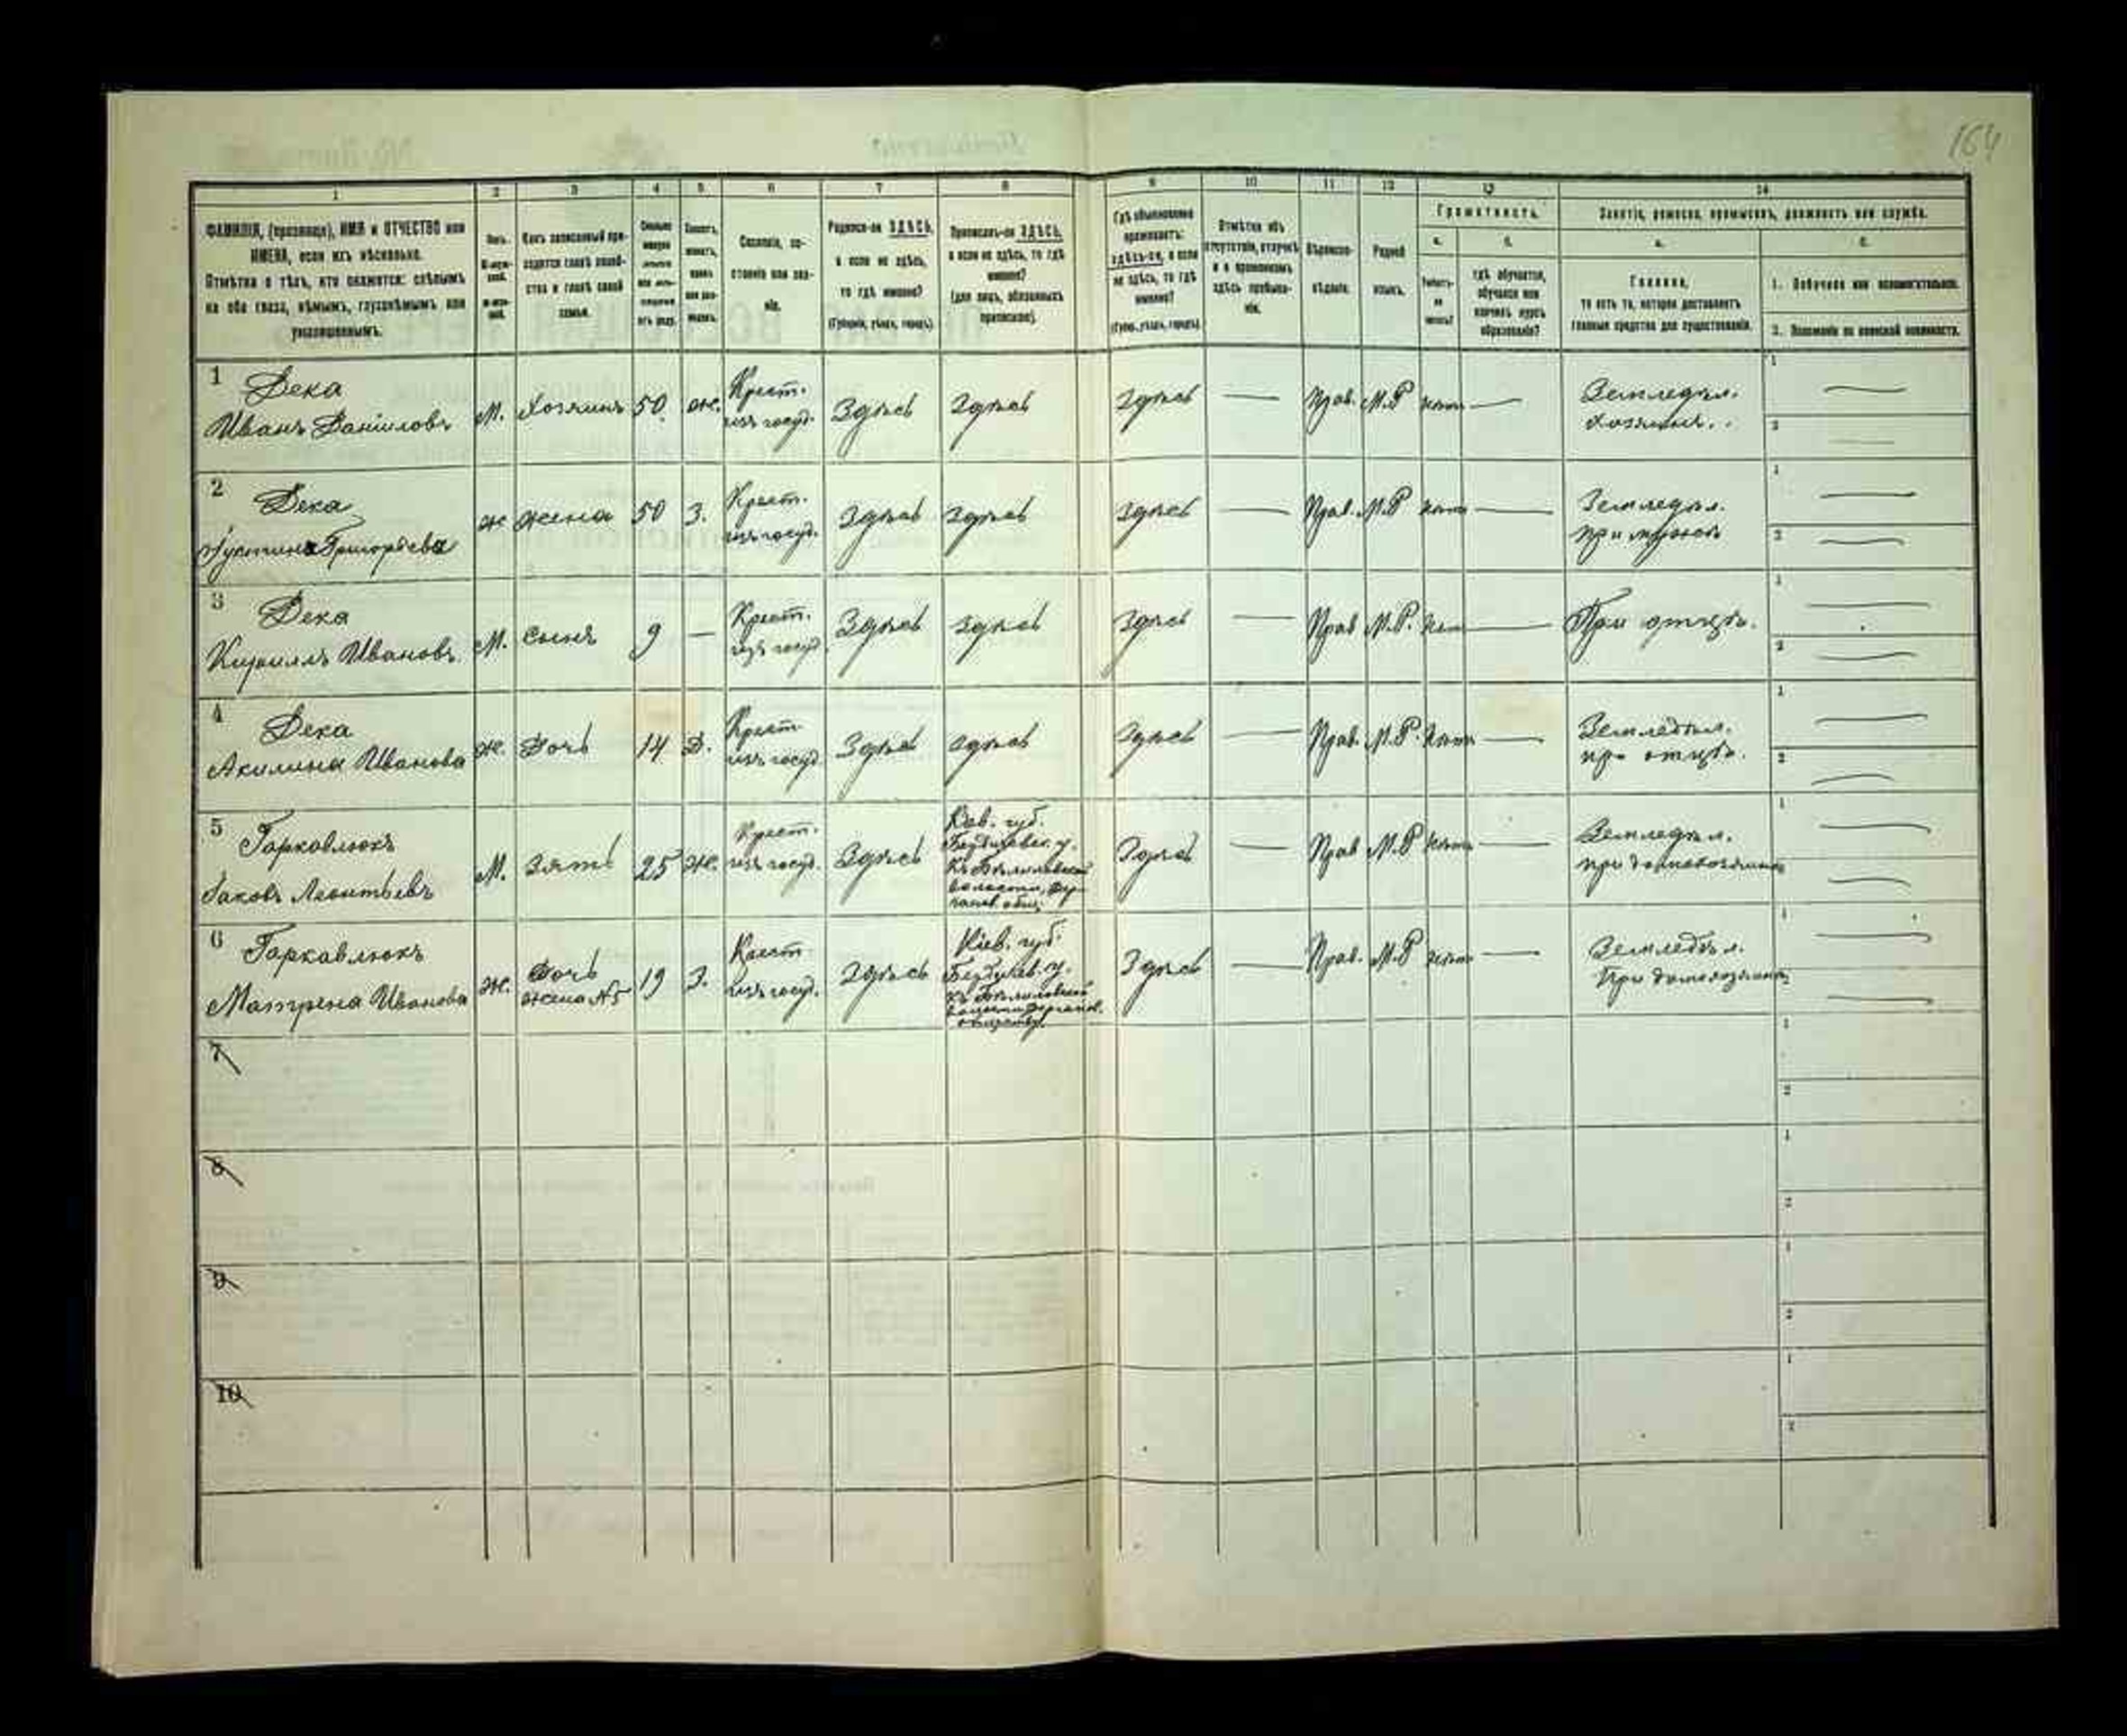 164
1 2 3 4 5 6 7 8 9 10 11 12 13 14
ФАМИЛІЯ, (прозвище), ИМЯ и ОТЧЕСТВО или
ИМЕНА, если ихъ нѣсколько.
Отмѣтка о тѣхъ, кто окажется: слѣпымъ
на оба глаза, нѣмымъ, глухонѣмымъ или
умалишеннымъ.
Какъ записанный при-
ходится главѣ хозяй-
ства и главѣ своей
семьи.
Сословіе, со-
стояніе или зва-
ніе.
Родился-ли ЗДѢСЬ,
а если не здѣсь,
то гдѣ именно?
(Губернія, уѣздъ, городъ).
Приписанъ-ли ЗДѢСЬ,
а если не здѣсь, то гдѣ
именно?
(для лицъ, обязанныхъ
припискою).
Гдѣ обыкновенно
проживаетъ:
здѣсь-ли, а если
не здѣсь, то гдѣ
именно?
(Губер., уѣздъ, городъ).
Отмѣтка объ
отсутствіи, отлучкѣ
и о временномъ
здѣсь пребыва-
ніи.
Вѣроиспо-
вѣданіе.
Родной
языкъ.
Грамотность.
а. б.
Умѣетъ-
ли
читать?
гдѣ обучается,
обучался или
кончилъ курсъ
образованія?
Занятіе, ремесло, промыселъ, должность или служба.
а. б.
Главное,
то есть то, которое доставляетъ
главныя средства для существованія.
1. Побочное или вспомогательное.
2. Положеніе по воинской повинности.
1 Дека
Иванъ Даніиловъ М. Хозяинъ 50 ж. Крест. изъ госуд. Здѣсь Здѣсь Здѣсь — Прав. М.Р нѣтъ — Земледѣл. хозяинъ.
2 Дека
Устина Григорьева ж жена 50 З. Крест. изъ госуд. Здѣсь Здѣсь Здѣсь — Прав. М.Р нѣтъ — Земледѣл. при мужѣ
3 Дека
Кириллъ Ивановъ М. Сынъ 9 — Крест. изъ госуд. Здѣсь Здѣсь Здѣсь — Прав М.Р. нѣтъ — При отцѣ.
4 Дека
Акилина Иванова ж. Дочь 14 Д. Крест изъ госуд. Здѣсь Здѣсь Здѣсь — Прав. М.Р. нѣтъ — Земледѣл. при отцѣ.
5 Гаркавлюкъ
Яковъ Леонтьевъ М. Зять 25 ж. Крест. изъ госуд. Здѣсь
Кіев. губ.
Бердичевск. у.
Къ Бѣлиловской
волости,
общ.
Здѣсь — Прав М.Р нѣтъ — Земледѣл. при домохозяинѣ
6 Гаркавлюкъ
Матрена Иванова ж. Дочь жена №5 19 З. Крест изъ госуд. Здѣсь
Кіев. губ.
Бердичев. у.
къ Бѣлиловской
волости
обществу.
Здѣсь — Прав. М.Р нѣтъ — Земледѣл. При домохозяинѣ
7
8
9
10